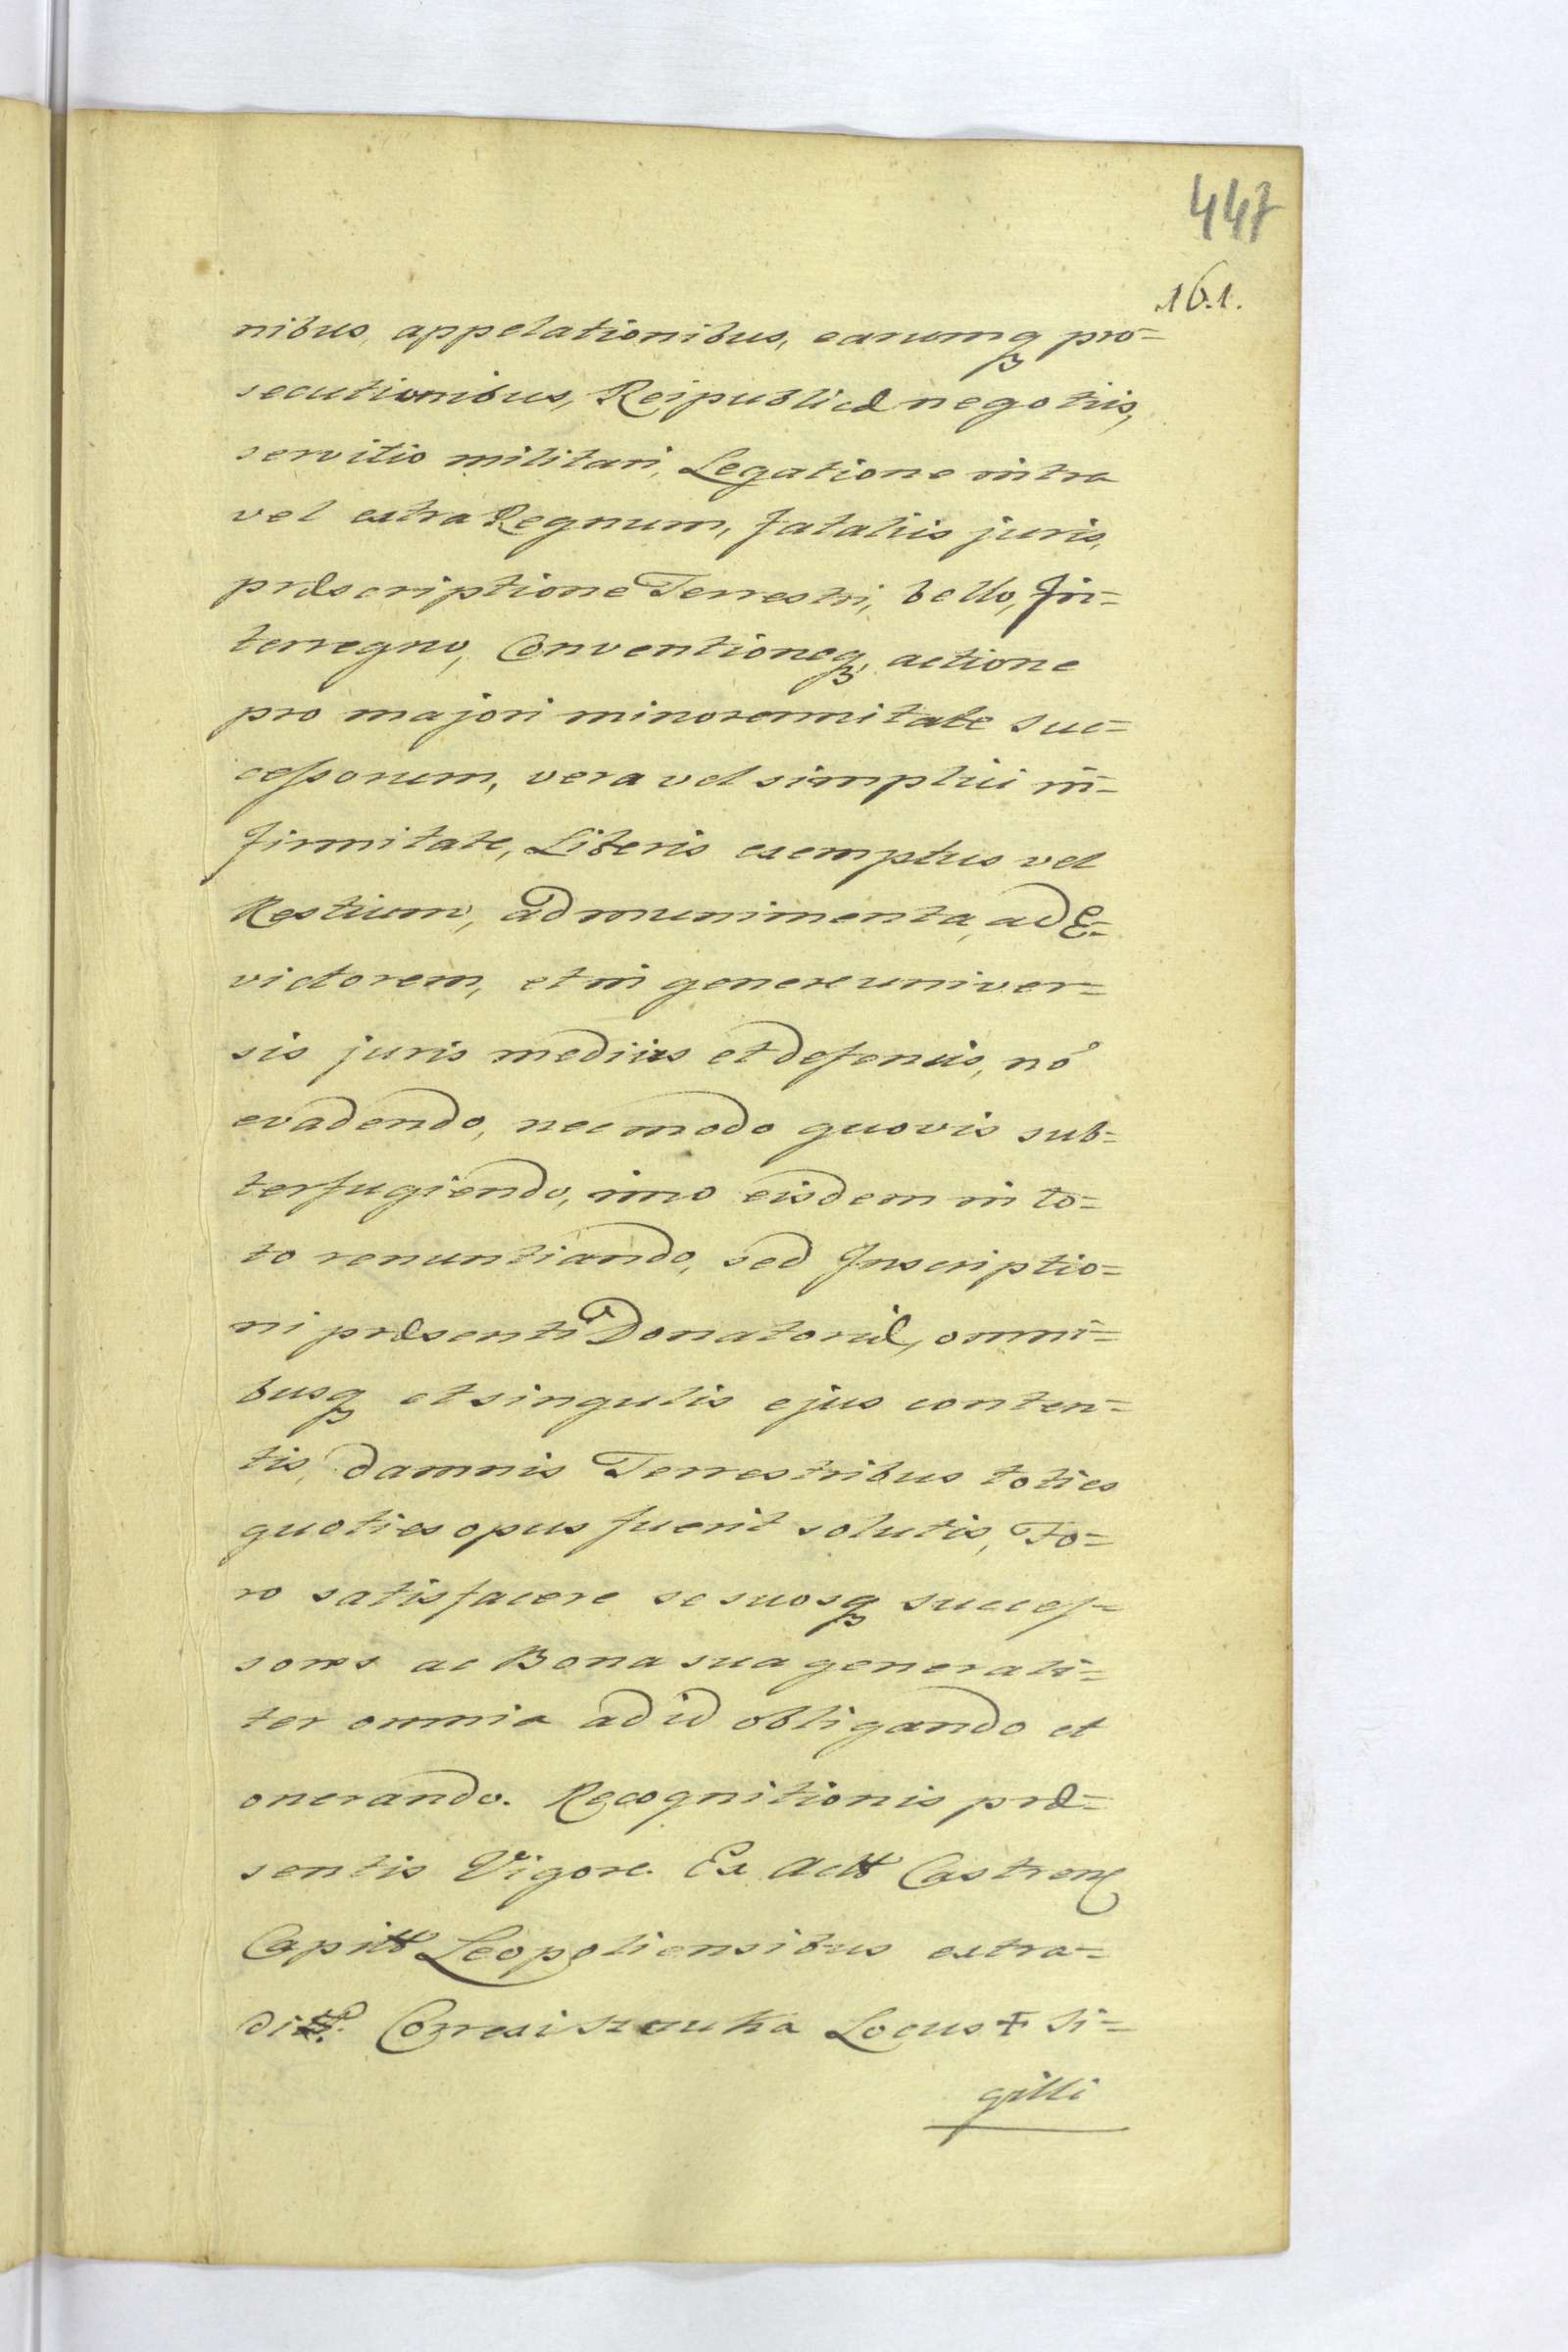 447
161.
nibus, appelationibus, earumq₃ pro=
secutionibus, Reipublicæ negotiis,
servitio militari, Legatione intra
vel extra Regnum, fataliis juris,
præscriptione Terrestri, bello, In=
terregno, Conventioneq₃, actione
pro majori minorennitate suc=
cessorum, vera vel simplici in=
firmitate, Liberis exemptus vel
Restium, ad munimenta, ad E=
victorem, et in genere univer=
sis juris mediis et defensis, nó
evadendo, nec modo quovis sub=
terfugiendo, imo eisdem in to=
to renuntiando, sed Inscriptio=
ni præsenti Donatoriæ, omni=
busq₃ et singulis ejus conten=
tis, damnis Terrestribus toties
quoties opus fuerit solutis, Fo=
ro satisfacere se suosq₃ succes=
sores ac Bona sua generali=
ter omnia ad id obligando et
onerando. Recognitionis præ=
sentis Vigore. Ex Actt Castren
Capitt Leopoliensibus extra=
ditt. Correxi Locus ✝ Si=
gilli